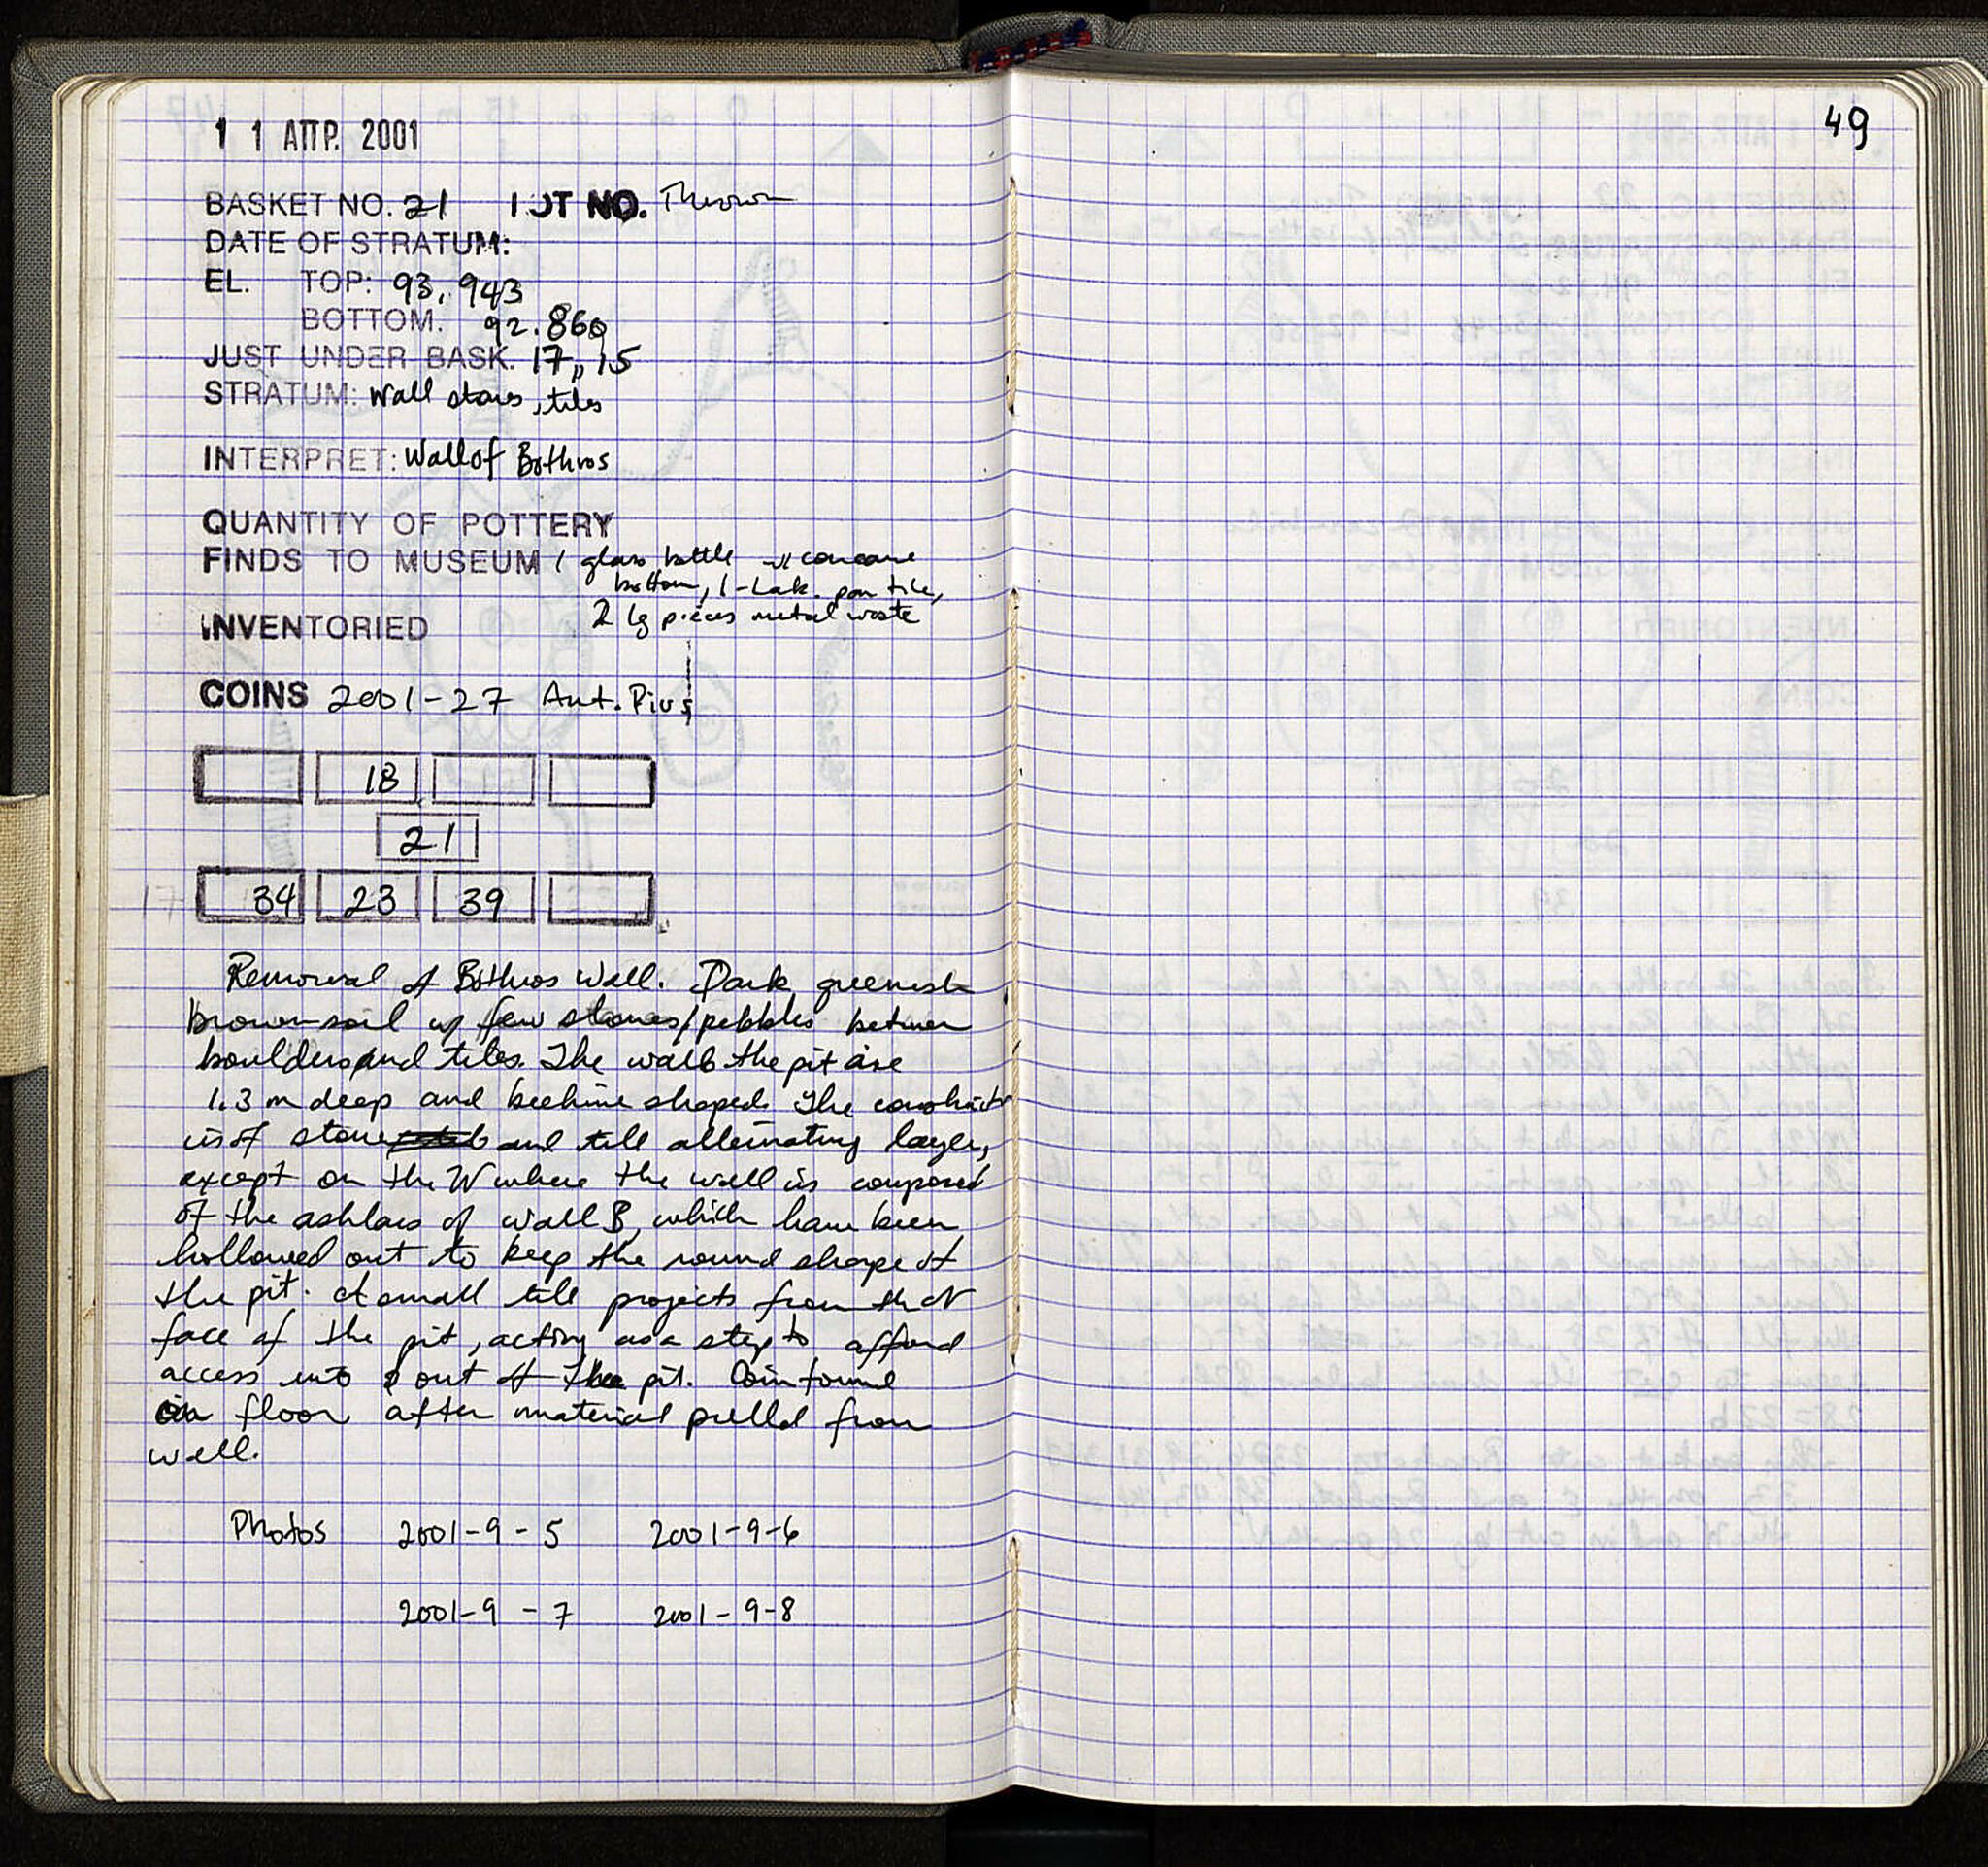 1 1 ΑΠΡ. 2001
49
BASKET NO. 21 LOT NO. Thrown
DATE OF STRATUM:
EL. TOP: 93.943
BOTTOM. 92.860
JUST UNDER BASK. 17, 15
STRATUM: Wall stones, tiles
INTERPRET: Wall of Bothros
QUANTITY OF POTTERY
FINDS TO MUSEUM 1 glass bottle w concave
bottom, 1-Lak. pan tile,
2 lg pieces metal waste
INVENTORIED
COINS 2001-27 Ant. Pius
18
21
17 34 23 39
Removal of Bothros Wall. Dark greenish
brown soil w/ few stones/pebbles between
boulders and tiles. The walls the pit are
1.3 m deep and beehive shaped. The construct
is of stone and tile alternating layers,
except on the W where the wall is composed
of the ashlars of wall B, which have been
hollowed out to keep the round shape of
the pit. A small tile projects from the N
face of the pit, acting as a step to afford
access into & out of the pit. Coin found
on floor after material pulled from
well.
Photos 2001-9-5 2001-9-6
2001-9-7 2001-9-8